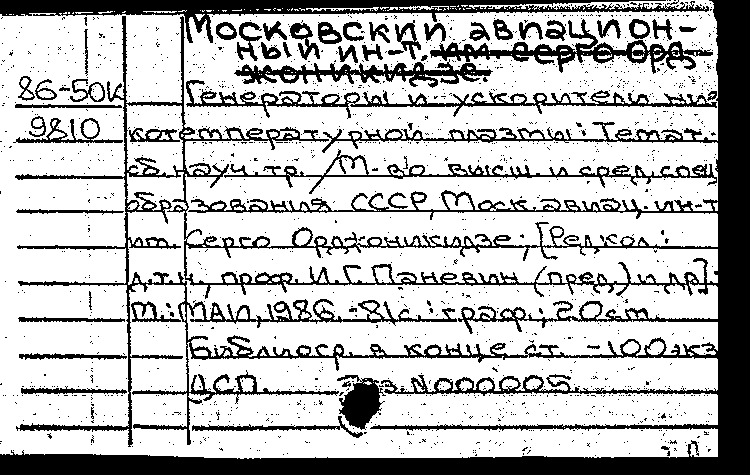 Московский авиацион-
ный ин-т. им Серго Орд
жоникидзе
86-50к
Генераторы и ускорители низ
9810
котемпературной плазмы: Темат.
сб. науч. тр. / М-во высш. и сред. спец
образования СССР, Моск. авиац. ин-т
им. Серго Орджоникидзе; [Редкол.:
д.т.н., проф. И.Г. Паневин (пред.) и др].
М.: МАИ, 1986. -81с.: граф.; 20см.
Библиогр. в конце ст. -100экз
ДСП. Экз. N000005.